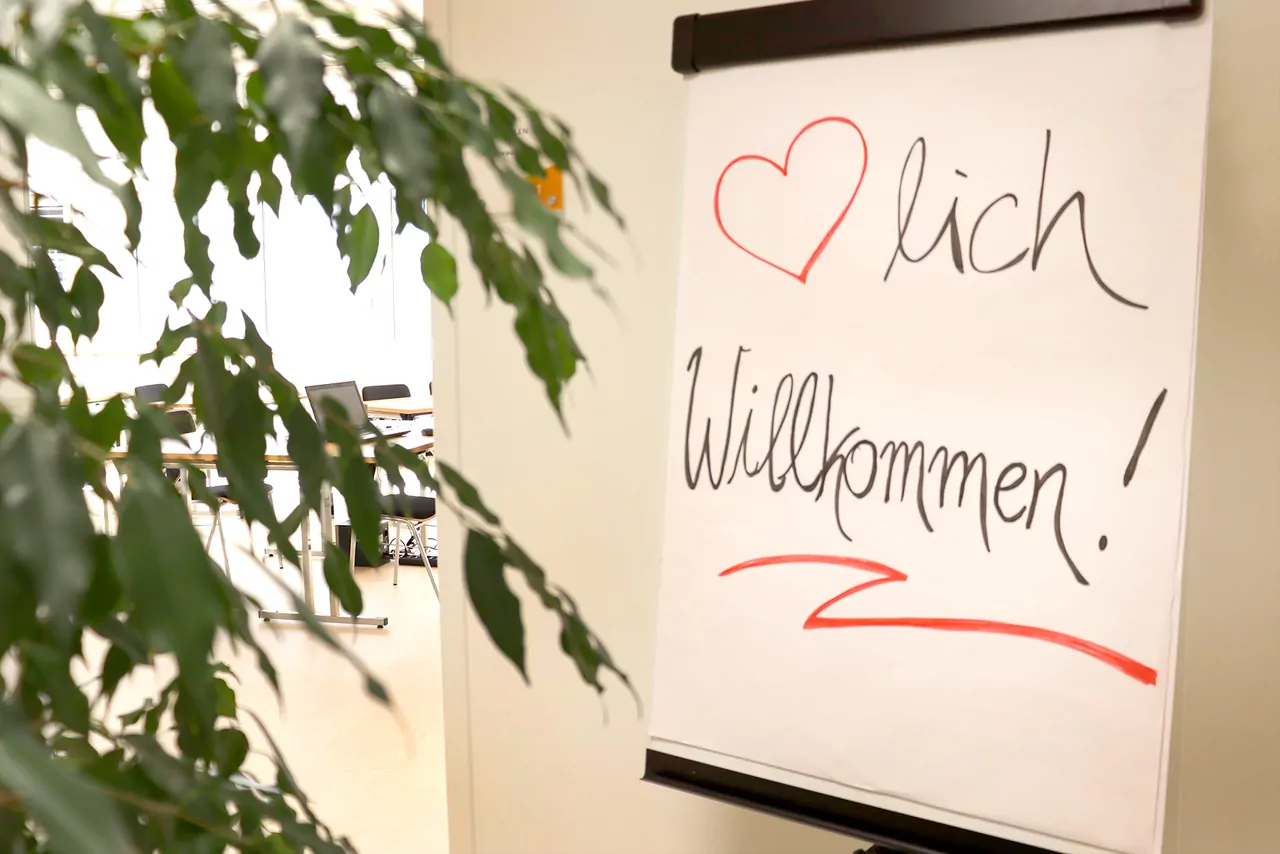 ❤lich
Willkommen!